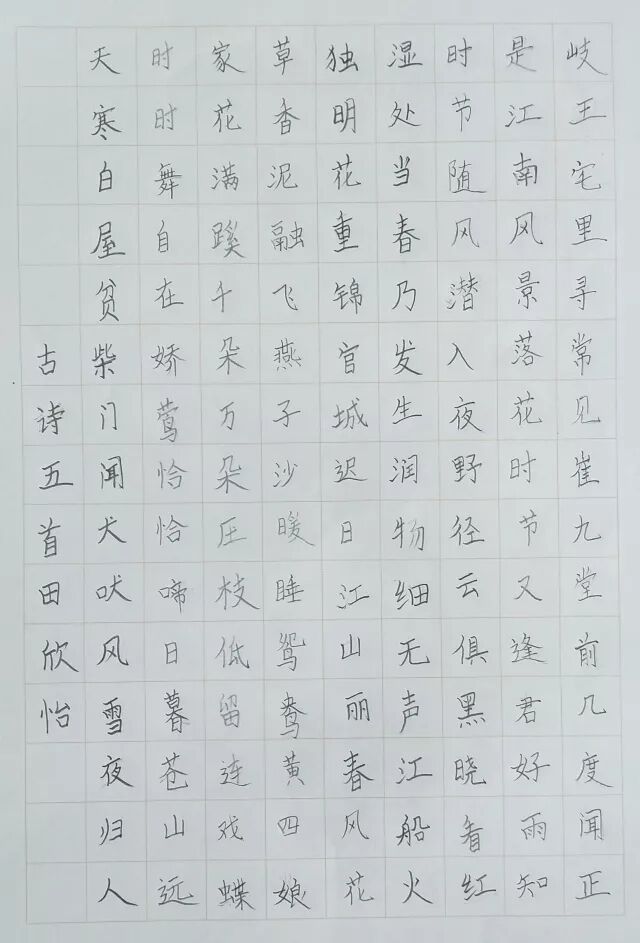 岐王宅里寻常见崔九堂前几度闻正
是江南风景落花时节又逢君好雨知
时节随风潜入夜野径云俱黑晓看红
湿处当春乃发生润物细无声江船火
独明花重锦官城迟日江山丽春风花
草香泥融飞燕子沙暖睡鸳鸯黄四娘
家花满蹊千朵万朵压枝低留连戏蝶
时时舞自在娇莺恰恰啼日暮苍山远
天寒白屋贫柴门闻犬吠风雪夜归人
古诗五首田欣怡